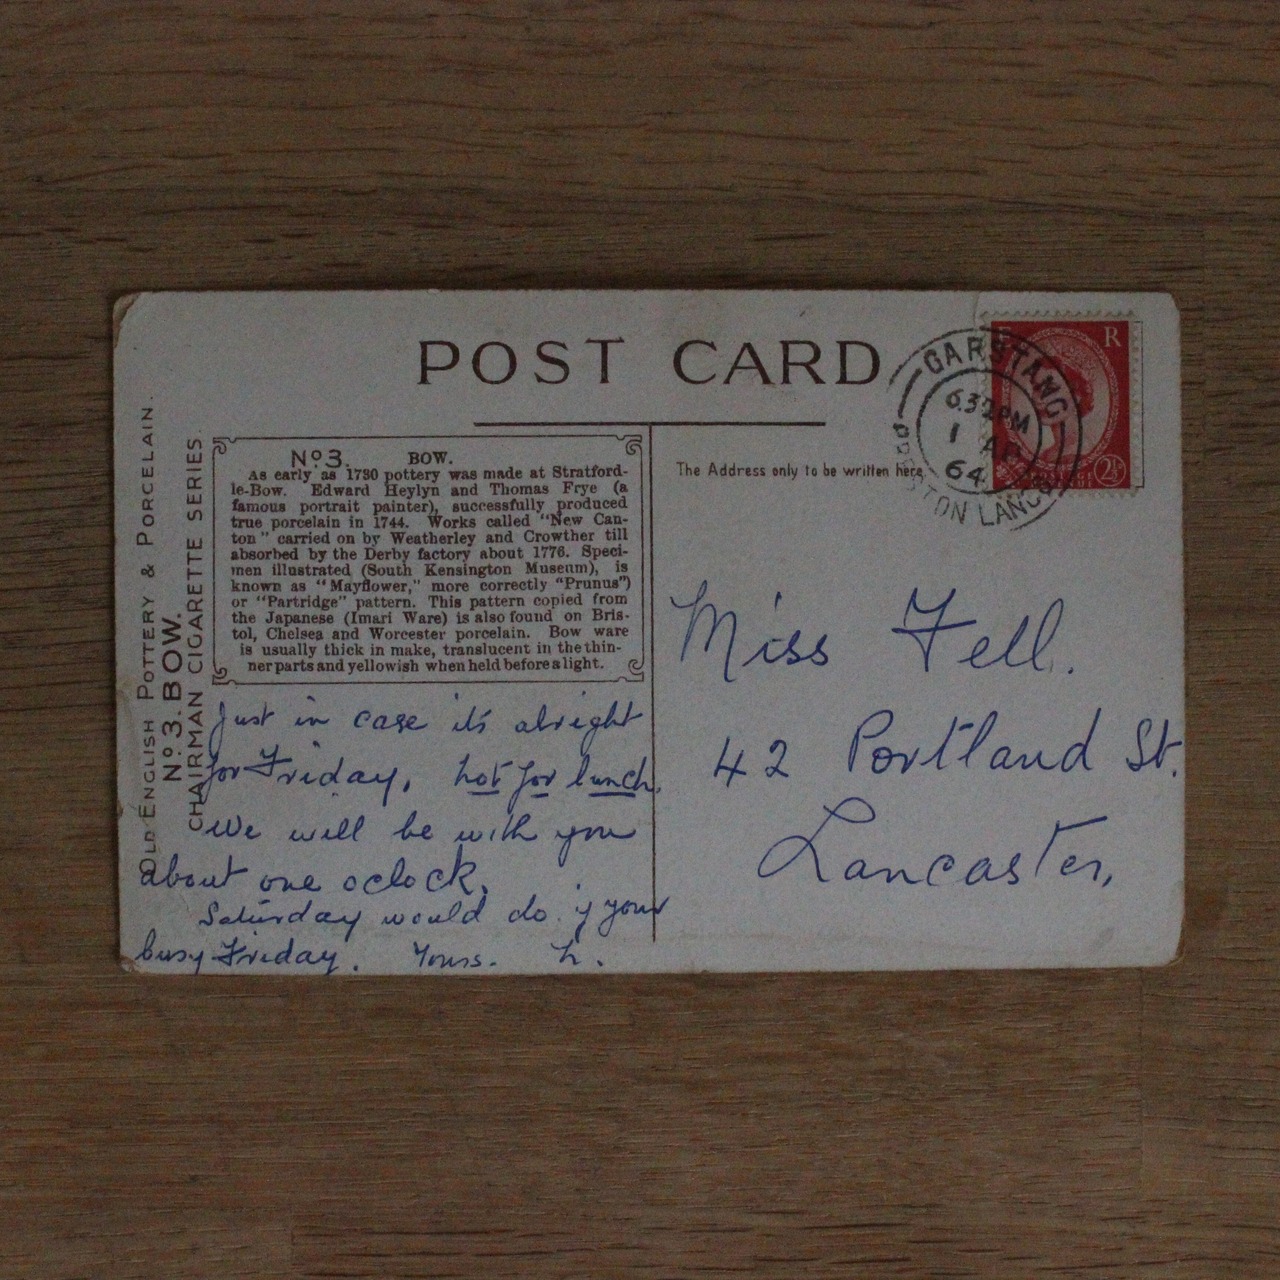 POST CARD
OLD ENGLISH POTTERY & PORCELAIN.
No. 3. BOW.
CHAIRMAN CIGARETTE SERIES.
No. 3. BOW.
As early as 1730 pottery was made at Stratford-
le-Bow. Edward Heylyn and Thomas Frye (a
famous portrait painter), successfully produced
true porcelain in 1744. Works called "New Can-
ton" carried on by Weatherley and Crowther till
absorbed by the Derby factory about 1776. Speci-
men illustrated (South Kensington Museum), is
known as "Mayflower," more correctly "Prunus")
or "Partridge" pattern. This pattern copied from
the Japanese (Imari Ware) is also found on Bris-
tol, Chelsea and Worcester porcelain. Bow ware
is usually thick in make, translucent in the thin-
ner parts and yellowish when held before a light.
Just in case it's alright
for Friday, not for lunch.
We will be with you
about one oclock.
Saturday would do if your
busy Friday. Yours. H.
The Address only to be written here
E R
2½
GARSTANG
6.32 PM
1 AP
64
PRESTON LANCS
Miss Fell.
42 Portland St.
Lancaster,